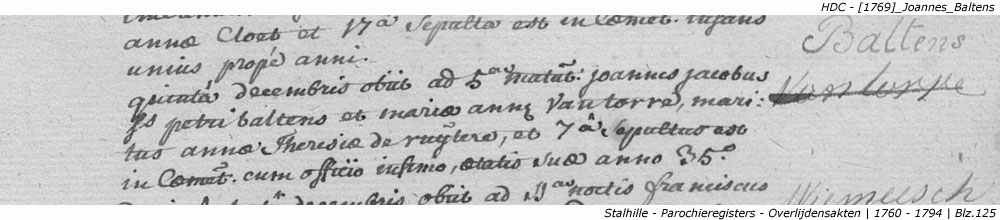 HDC - [1769]_Joannes_Baltens
annæ Cloet et 17ª Sepulta est in Cœmet. infans
Baltens
unius propè anni.
quintâ decembris obiit ad 5ªm matut: joannes jacobus
Vantorre
fs petri baltens et mariæ annæ Vantorre, mari:
tus annæ Theresiæ de ruÿtere, et 7ª Sepultus est
in Cœmet. cum officio infimo, ætatis suæ anno 35.º
decembris obiit ad noctis franciscus
Stalhille - Parochieregisters - Overlijdensakten | 1760 - 1794 | Blz.125